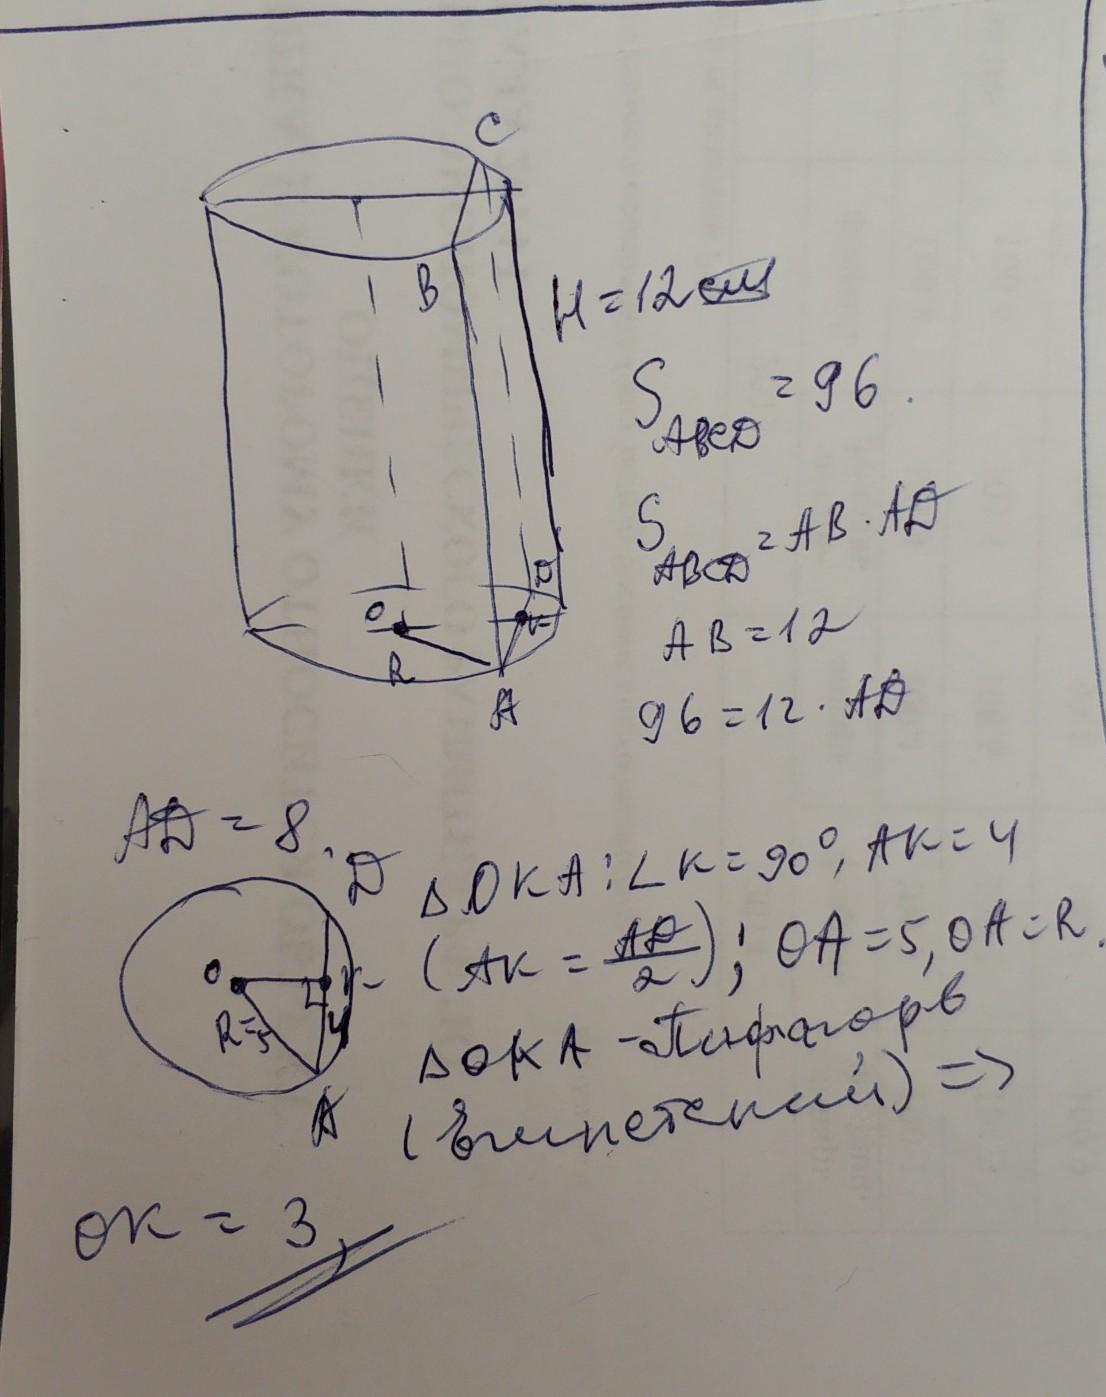 C
B
H = 12
S ABCD = 96.
S ABCD = AB · AD
AB = 12
96 = 12 · AD
O
R
A
D
K
AD = 8.
D
O
K
R=5
4
A
Δ OKA: ∠K = 90°, AK = 4
(AK = AD/2); OA = 5, OA = R.
Δ OKA - Пифагорв
(Египетский) =>
OK = 3,